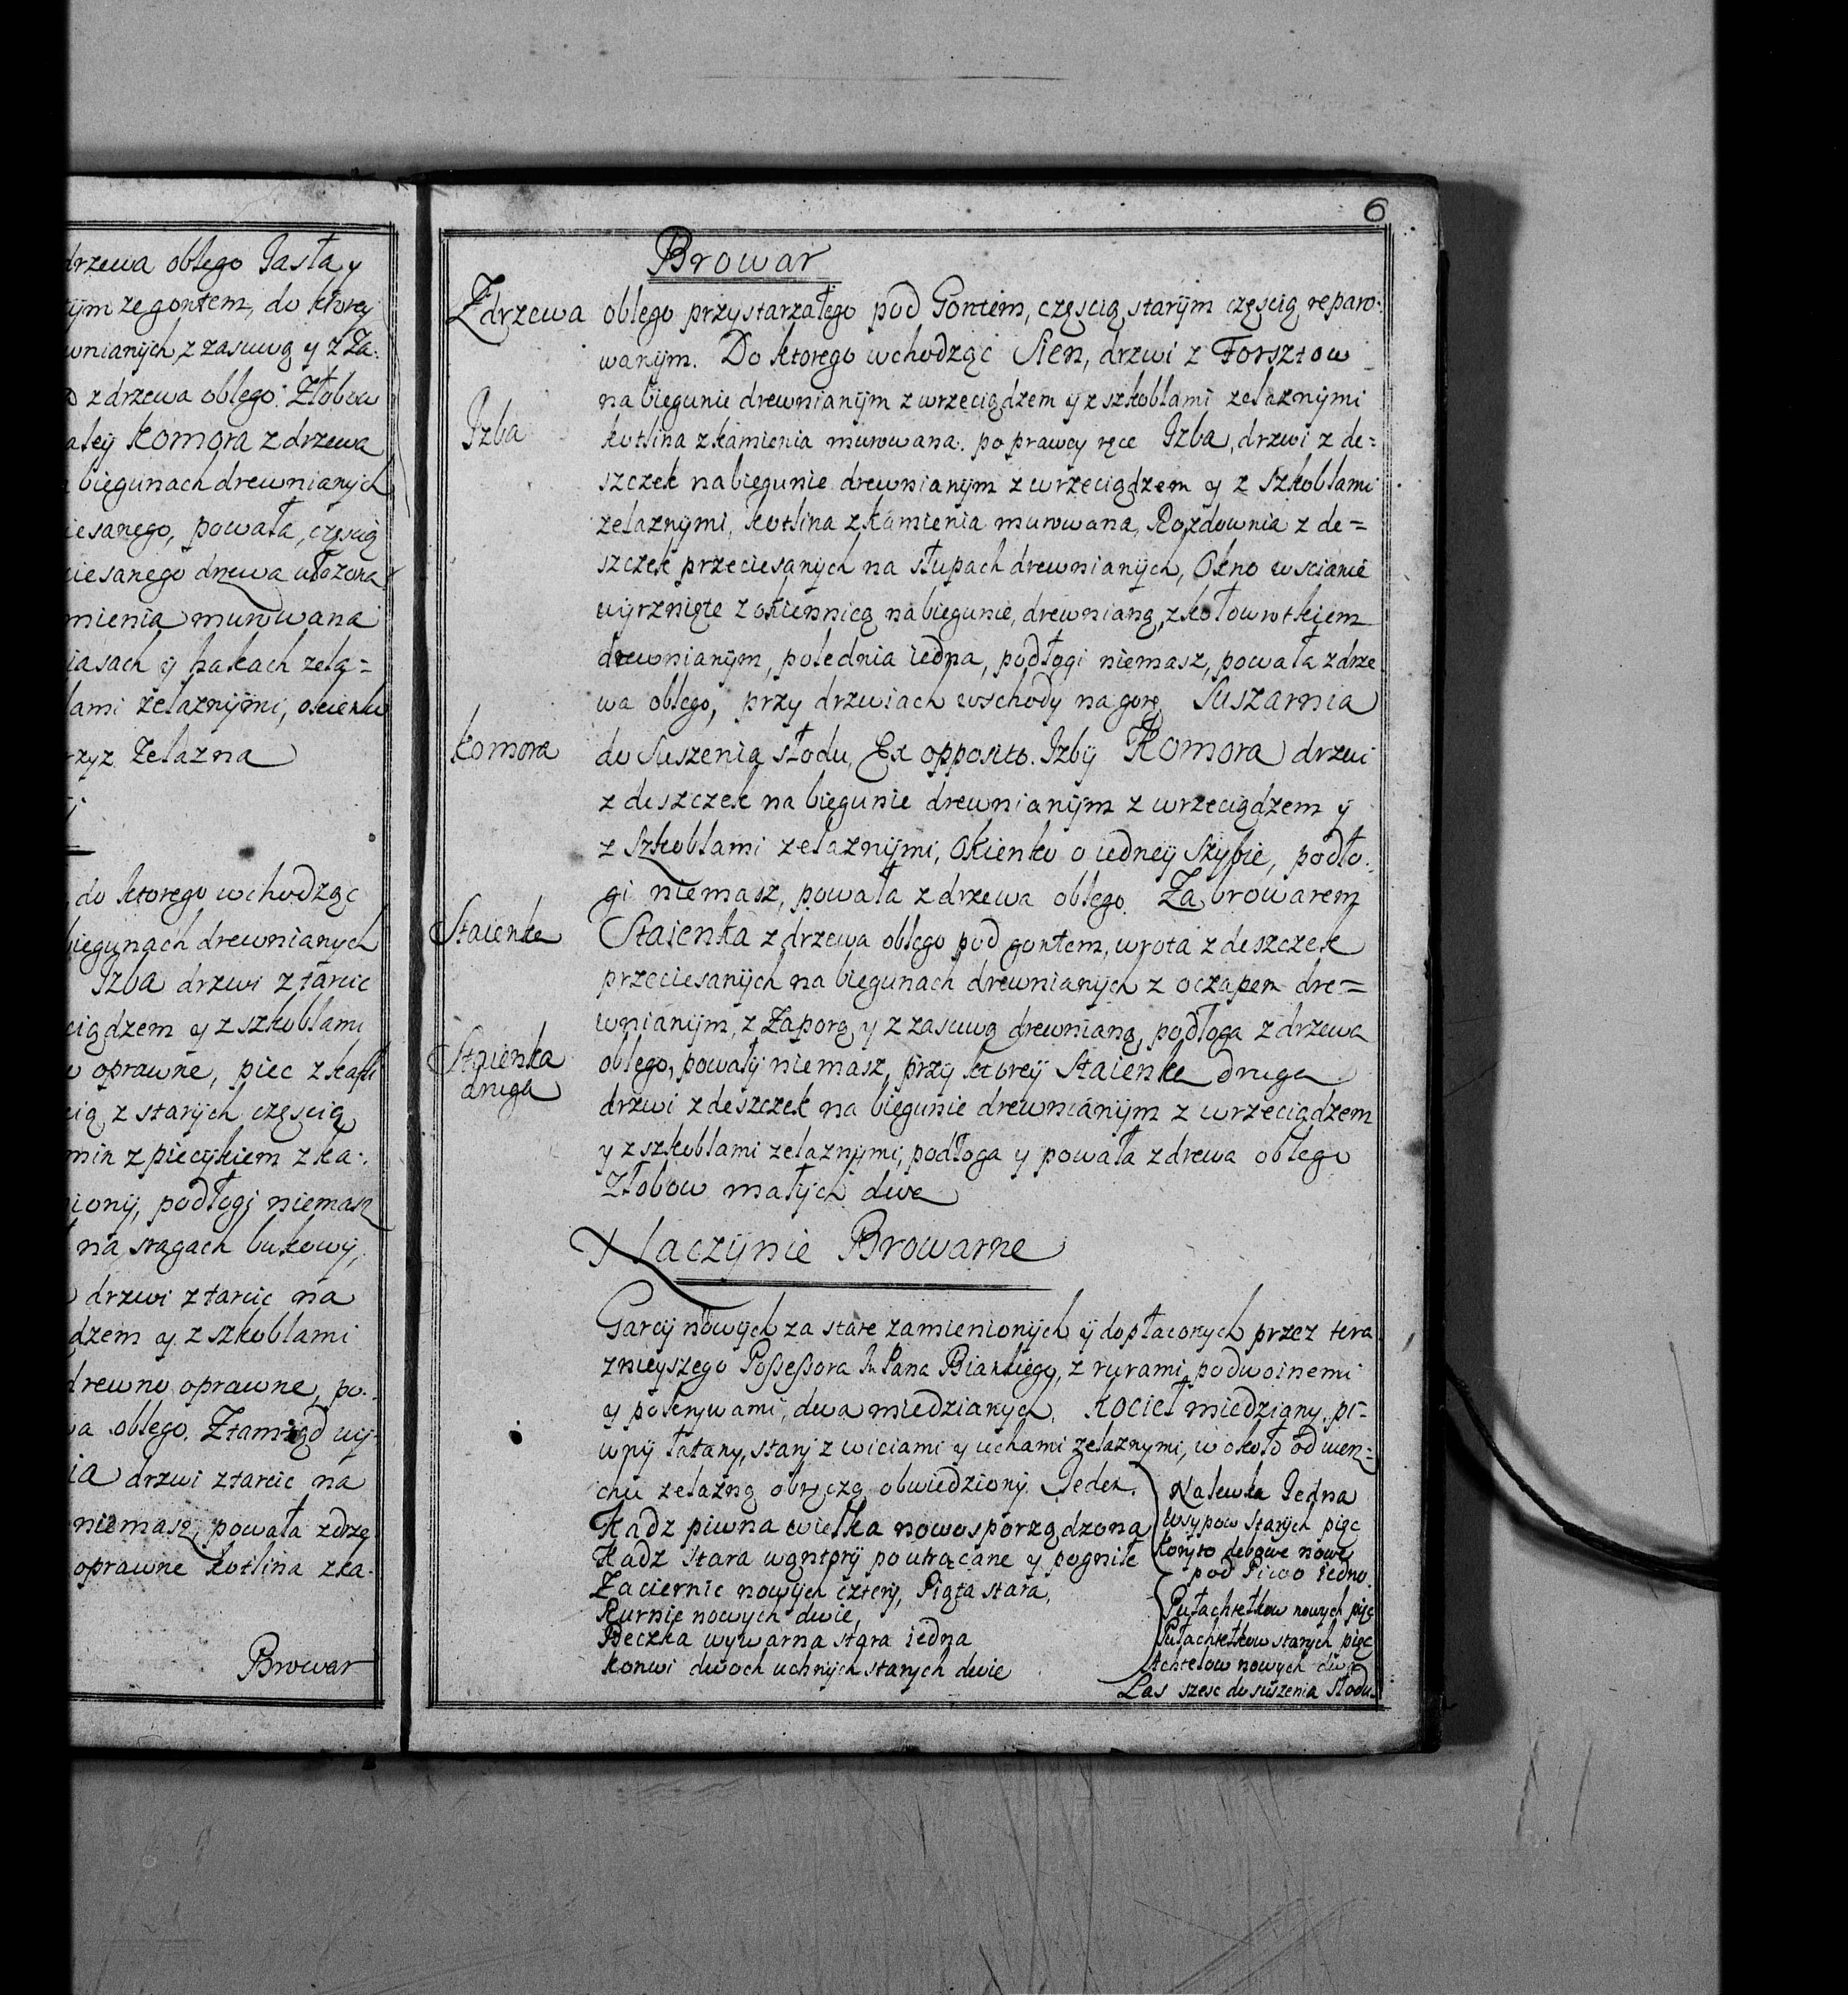 drzewa oblego Jasła y
tym ze gontem, do ktorey
wnianych z zasuwą y z Za:
z drzewa oblego: Złobow
Komora z drzewa
biegunach drewnianych
iesanego, powała, częscią
ciesanego drzewa ułozona
mienia murowana
iasach y hakach zela=
lami zelaznymi, okienko
rzyz Zelazna
do ktorego wchodząc
biegunach drewnianych
Izba drzwi z tarcic
ciądzem y z szkoblami
oprawne, piec z kafli
cią z starych częscią
min z piecykiem z ka:
iony, podłogi niemasz
na sragach bukowy,
drzwi z tarcic na
dzem y z szkoblami
drewno oprawne, po:
wa oblego. Ztamtąd wy
ia drzwi z tarcic na
niemasz, powała z drze
oprawne kotlina z ka:
Browar
6
Browar
Z drzewa oblego przystarzałego pod Gontem, częscią starym częscią reparo:
wanym. Do ktorego wchodząc Sien, drzwi z Forsztow
na biegunie drewnianym z wrzeciądzem y z szkoblami zelaznymi
Izba
kotlina z kamienia murowana. po prawey ręce Izba, drzwi z de=
szczek na biegunie drewnianym z wrzeciądzem y z szkoblami
zelaznymi, kotlina z kamienia murowana, Rozdownia z de=
szczek przeciesanych na słupach drewnianych, Okno w scianie
wyrznięte z okiennicą na biegunie, drewnianą, z kołowrotkiem
drewnianym, polednia iedna, podłogi niemasz, powała z drze
wa oblego, przy drzwiach wschody na gorę Suszarnia
Komora
do suszenia słodu, Ex opposito Izby Komora drzwi
z deszczek na biegunie drewnianym z wrzeciądzem y
z szkoblami zelaznymi, Okienko o iedney szybie, podło:
gi niemasz, powała z drzewa oblego. Za browarem
Staienka
Staienka z drzewa oblego pod gontem, wrota z deszczek
przeciesanych na biegunach drewnianych z oczapem dre=
wnianym, z Zaporą y z zasuwą drewnianą, podłoga z drzewa
Staienka druga
oblego, powały niemasz, przy ktorey Staienka druga
drzwi z deszczek na biegunie drewnianym z wrzeciądzem
y z szkoblami zelaznymi, podłoga y powała z drewa oblego
Złobow małych dwa
Naczynie Browarne
Garcy nowych za stare zamienionych y dopłaconych przez tera
znieyszego Possessora Pana Biankiego, z rurami podwoinemi
y pokrywami, dwa miedzianych. Kocieł miedziany pi=
wny łatany, stary z wiciami y uchami zelaznymi, w około od wier=
chu zelazną obręczą obwiedziony Jeden.
Kadz piwna wielka nowosporządzona
Kadz stara wąntory poutrącane y pogniłe
Zaciernic nowych cztery, Piąta stara,
Rurnic nowych dwie,
Beczka wywarna stara iedna
Konwi dwoch uchnych starych dwie
Nalewka Jedna
Wsypow starych pięc
Koryto dębowe nowe
pod Piwo iedno.
Pułachtelkow nowych pięc
Pułachtelkow starych pięc
Achtelow nowych dwa
Las szesc do suszenia słodu